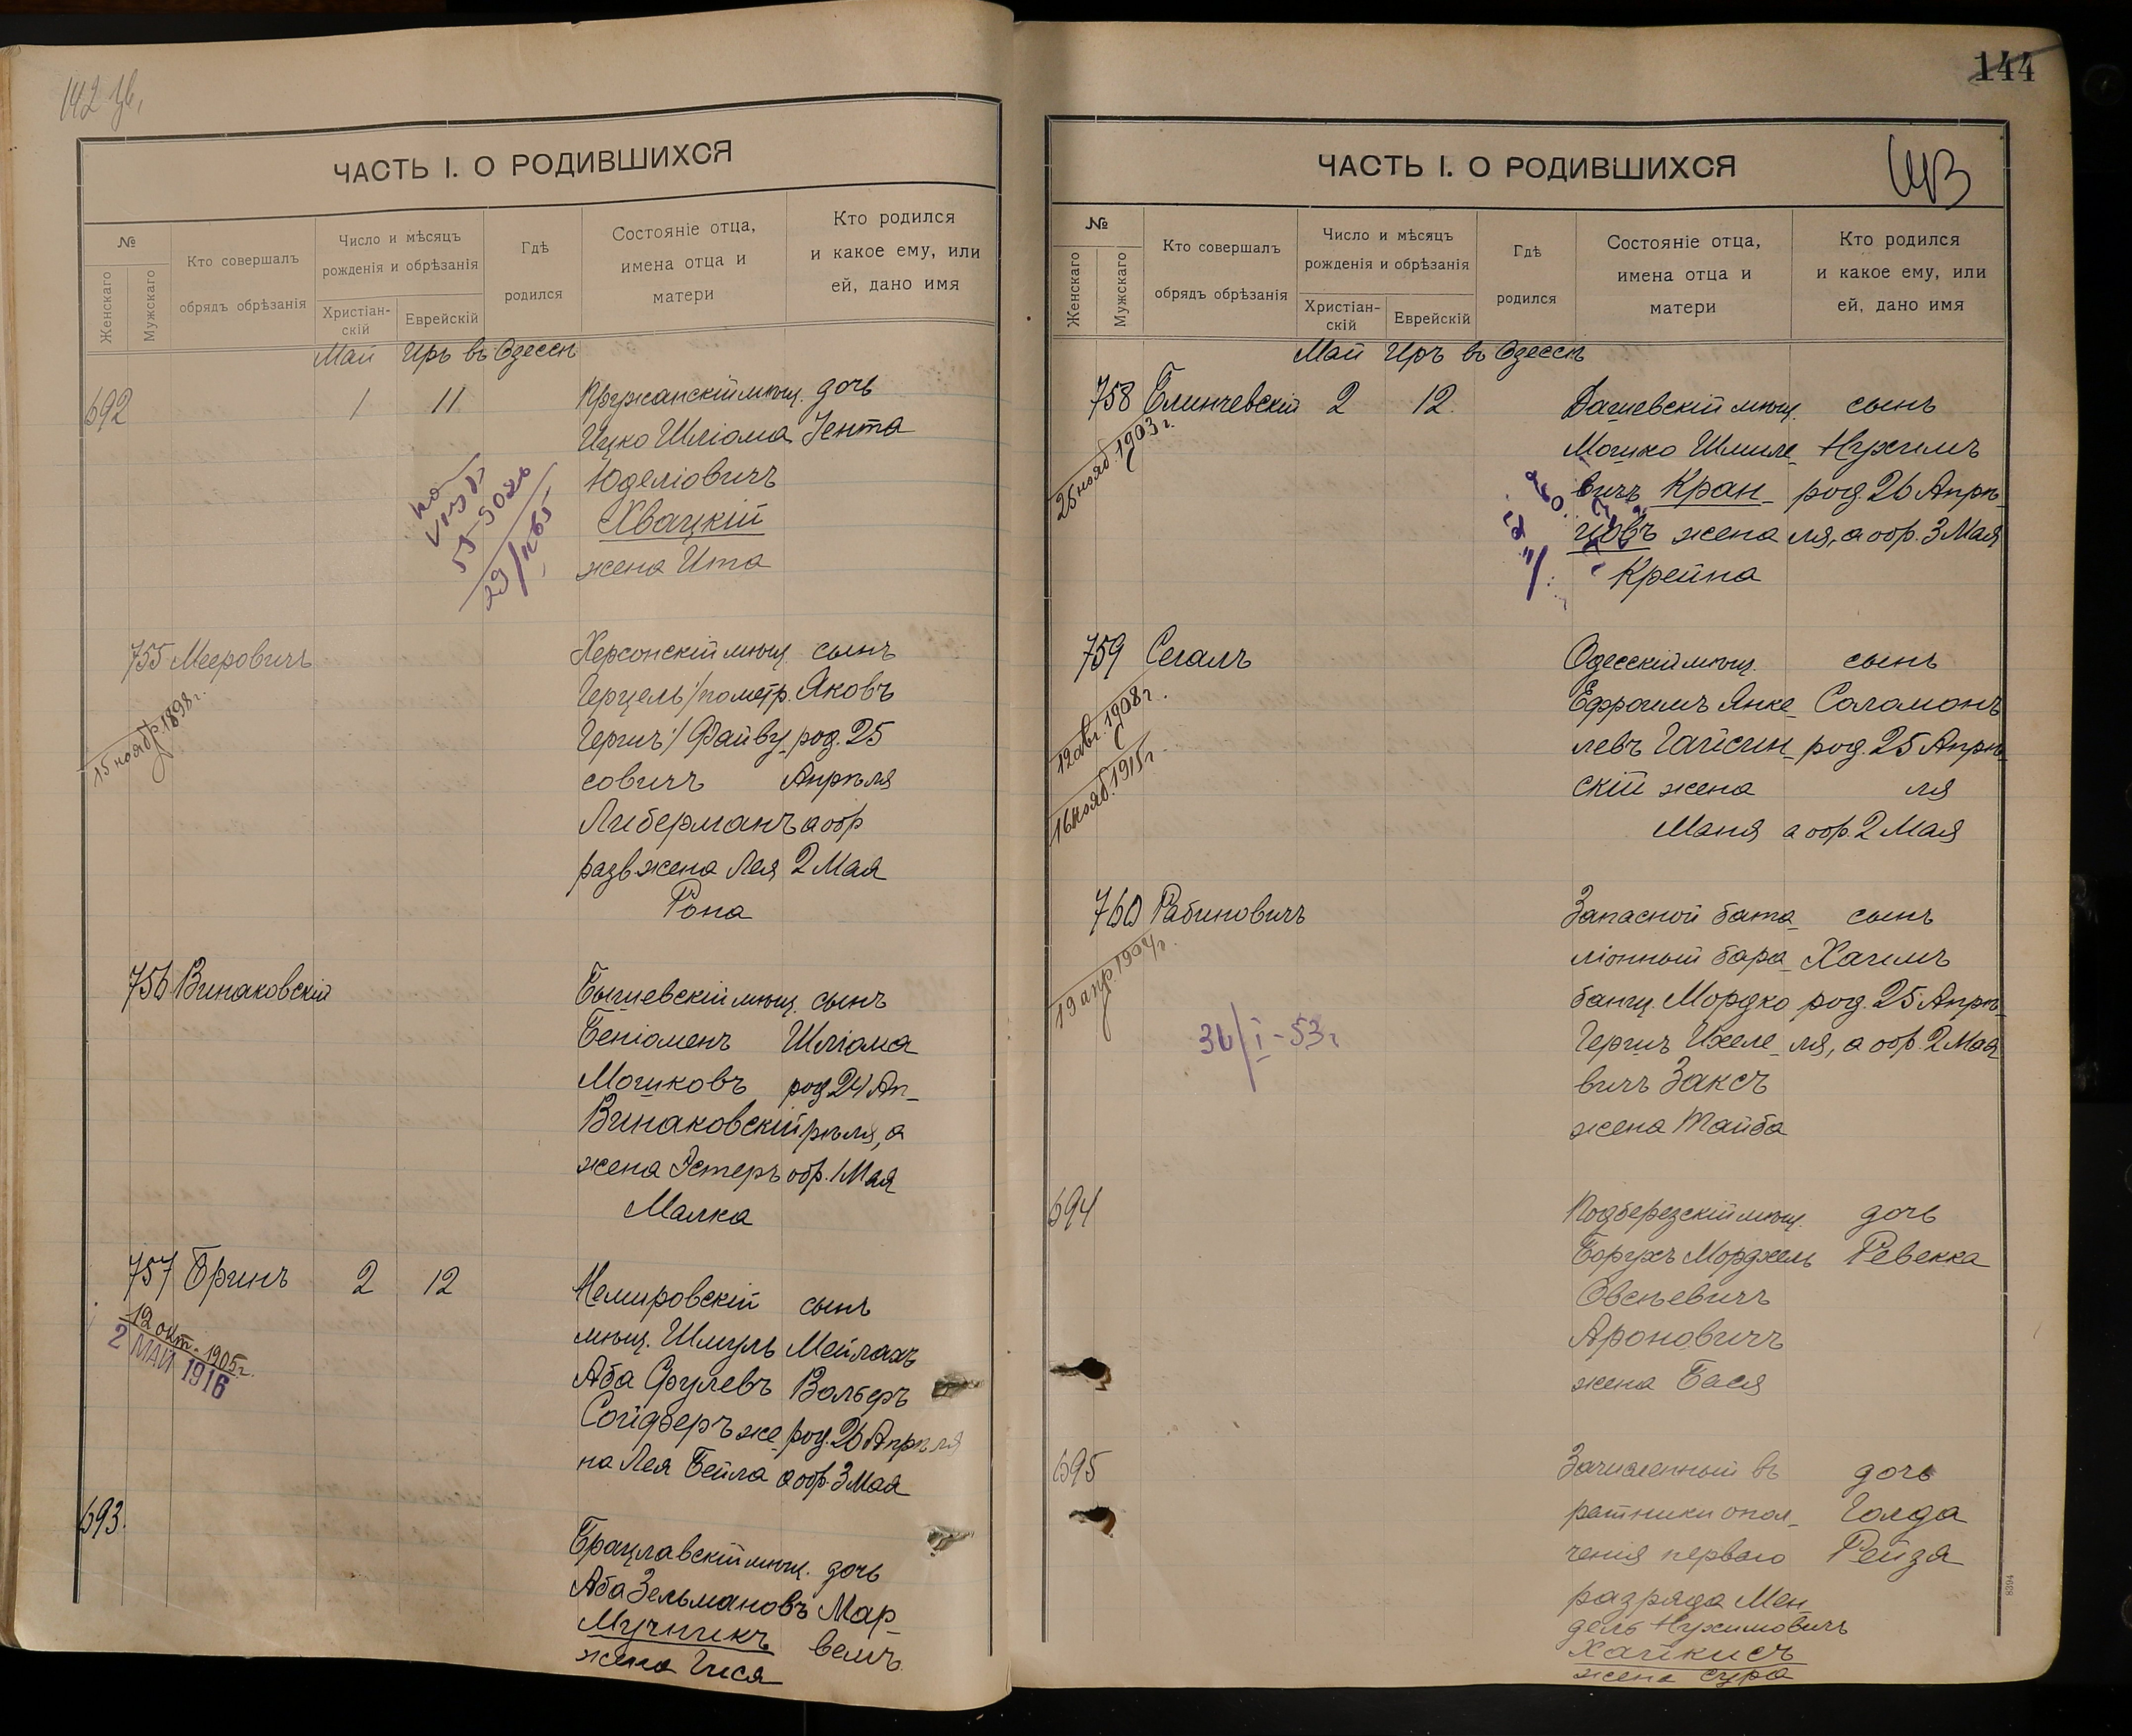 142 об.
ЧАСТЬ I. О РОДИВШИХСЯ
№
Женскаго
Мужскаго
Кто совершалъ
обрядъ обрѣзанія
Число и мѣсяцъ
рожденія и обрѣзанія
Христіан-
скій
Еврейскій
Гдѣ
родился
Состояніе отца,
имена отца и
матери
Кто родился
и какое ему, или
ей, дано имя
Май Иръ въ Одессѣ
692 1 11 Пружанскій мѣщ. дочь
Ицко Шліома Iента
Юделіовичъ
Хвацкій
жена Ита
755 Мееровичъ Херсонскій мѣщ. сынъ
15 ноябр. 1898 г.
Герцель /по метр. Яковъ
Гершъ/ Файву род. 25
совичъ Апрѣля
Либерманъ а обр
разв. жена Лея 2 Мая
Рона
756 Винаковскій Бышевскій мѣщ. сынъ
Беніоменъ Шліома
Мошковъ род. 24 Ап-
Винаковскій рѣля, а
жена Эстеръ обр. 1 Мая
Малка
757 Бринъ 2 12 Немировскій сынъ
12 окт. 1905 г.
2 МАЙ 1916
мѣщ. Шмуль Мейлахъ
Аба Срулевъ Вольфъ
Сойферъ же род. 26 Апрѣля
на Лея Бейла а обр. 3 Мая
693. Брацлавскій мѣщ. дочь
Аба Зельмановъ Мар-
Мучникъ
жена Гися
144
ЧАСТЬ I. О РОДИВШИХСЯ
№
Женскаго
Мужскаго
Кто совершалъ
обрядъ обрѣзанія
Число и мѣсяцъ
рожденія и обрѣзанія
Христіан-
скій
Еврейскій
Гдѣ
родился
Состояніе отца,
имена отца и
матери
Кто родился
и какое ему, или
ей, дано имя
Май Иръ въ Одессѣ
758 Блинчевскій 2 12. Дашевскій мѣщ. сынъ
25 нояб. 1903 г.
Мошко Шмиле- Нухимъ
вичъ Кран- род. 26 Апрѣ-
цовъ жена ля, а обр. 3 Мая
Крейна
759 Сегалъ Одесскій мѣщ. сынъ
12 авг. 1908 г.
16 нояб. 1915 г.
Ефроимъ Янке- Соломонъ
левъ Гайсин- род. 25 Апрѣ-
скій жена ля
Маня а обр. 2 Мая
760 Рабиновичъ Запасной бата- сынъ
19 апр. 1904 г.
ліонный бара- Хаимъ
банщ. Мордко род. 25 Апрѣ-
Гершъ Ихеле- ля, а обр. 2 Мая
вичъ Заксъ
жена Тайба
694 Подберезскій мѣщ. дочь
Борухъ Морджель Ревекка
Овсѣевичъ
Ароновичъ
жена Бася
695 Зачисленный въ дочь
ратники опол- Голда
ченія перваго Рейзя
разряда Мен-
дель Нухимовичъ
Хайкисъ
жена Сура
8394